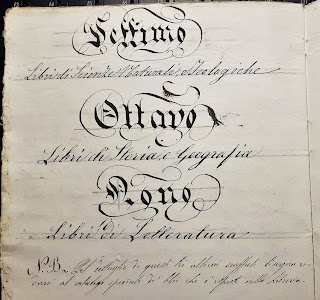 Settimo
Libri di Scienze Naturali, e Teologiche
Ottavo
Libri di Storia, e Geografia
Nono
Libri di Letteratura
N. B. Pel dettaglio di questi tre ultimi scaffali bisogna re-
carsi al catalogo speciale di libri che è esposto nella Libreria.